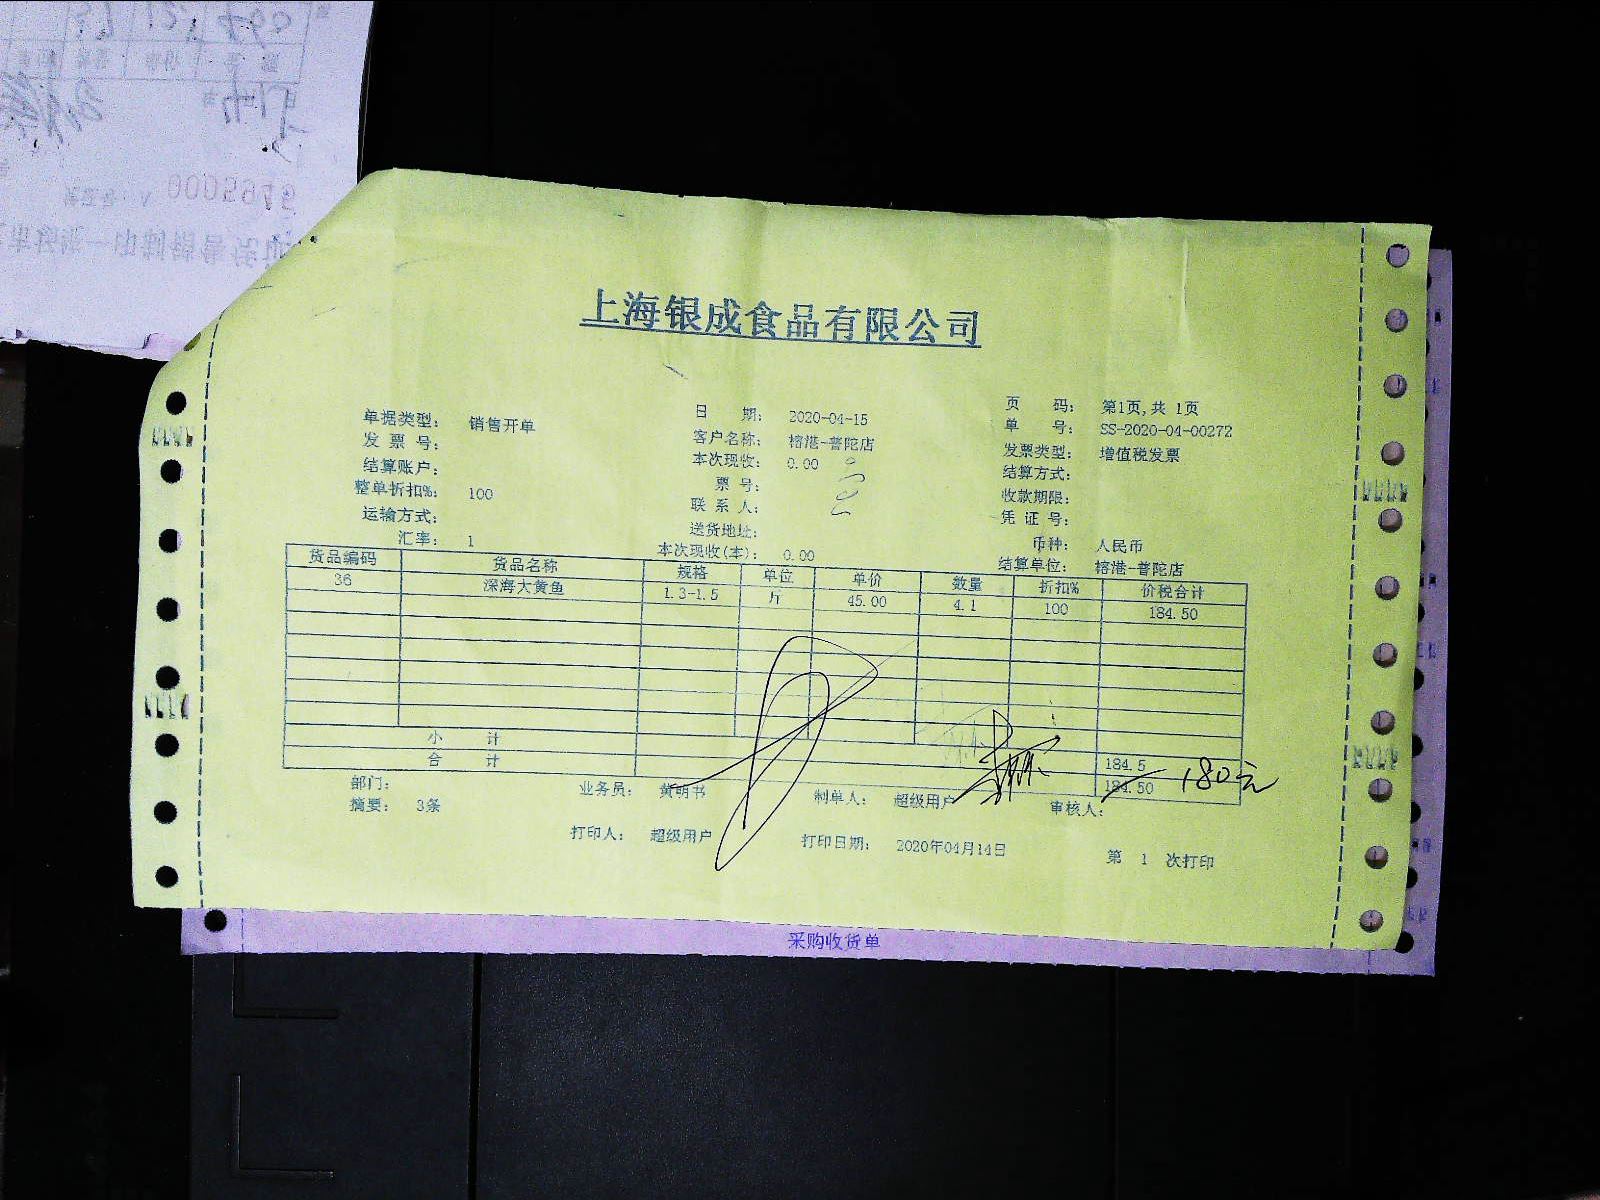 上海银成食品有限公司
单据类型： 销售开单 日 期： 2020-04-15 页 码： 第1页,共 1页
发 票 号： 客户名称： 榕港-普陀店 单 号： SS-2020-04-00272
结算账户： 本次现收： 0.00 发票类型： 增值税发票
整单折扣%： 100 票 号： 结算方式：
运输方式： 联 系 人： 收款期限：
汇率： 1 送货地址： 凭 证 号：
本次现收(本)： 0.00 币种： 人民币
结算单位： 榕港-普陀店
货品编码 货品名称 规格 单位 单价 数量 折扣% 价税合计
36 深海大黄鱼 1.3-1.5 斤 45.00 4.1 100 184.50
小 计 184.5
合 计 184.50 180元
部门： 业务员： 黄明书 制单人： 超级用户 审核人：
摘要： 3条
打印人： 超级用户 打印日期： 2020年04月14日 第 1 次打印
采购收货单